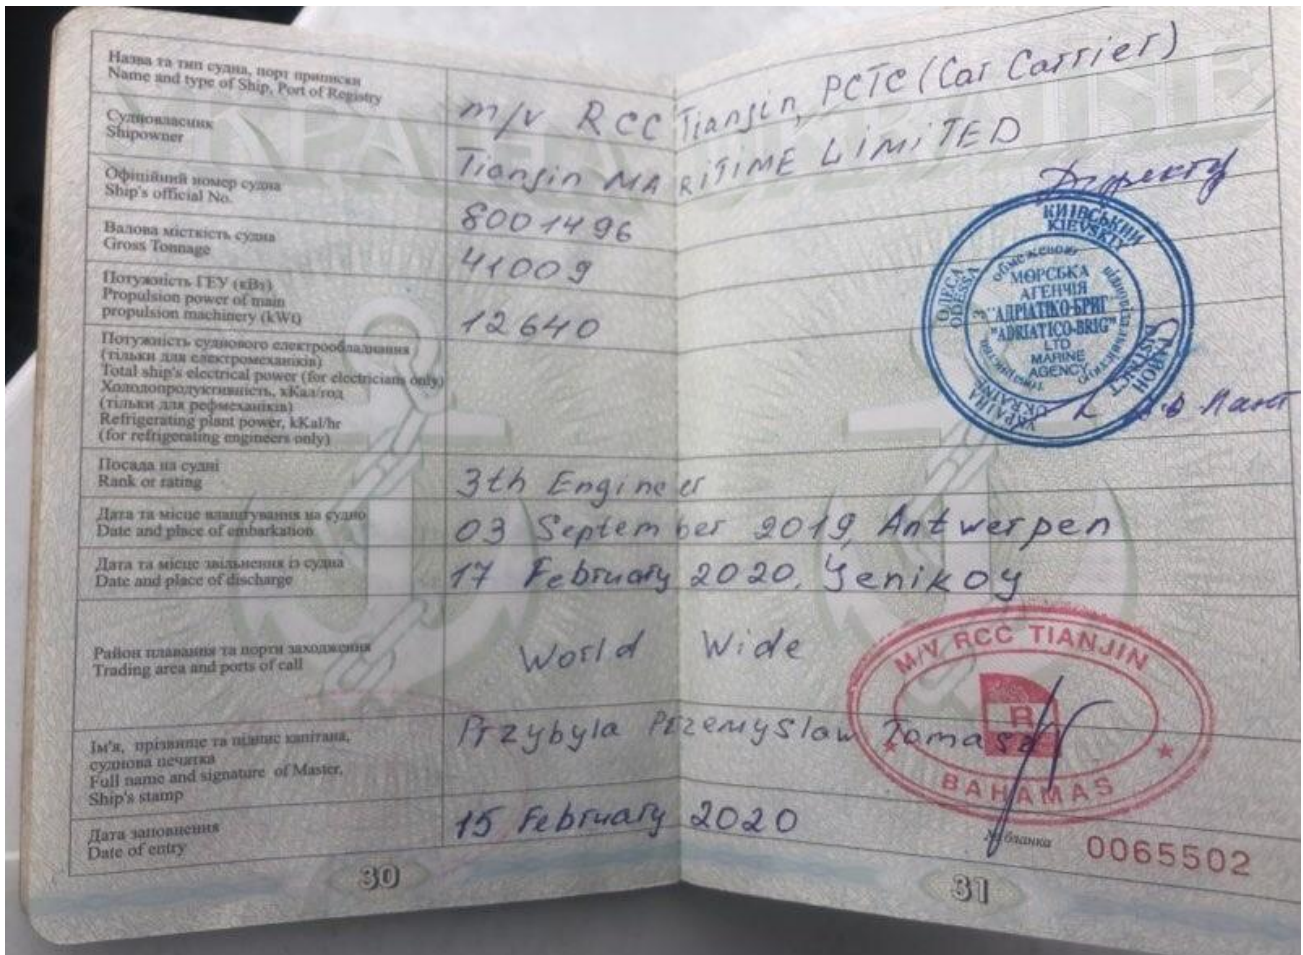 Назва та тип судна, порт приписки
Name and type of Ship, Port of Registry
m/v RCC Tianjin, PCTC (Car Carrier)
Судновласник
Shipowner
Tianjin MARITIME LIMITED
Офіційний номер судна
Ship's official No.
8001496
Валова місткість судна
Gross Tonnage
41009
Потужність ГЕУ (кВт)
Propulsion power of main
propulsion machinery (kWt)
12640
Потужність суднового електрообладнання
(тільки для електромеханіків)
Total ship's electrical power (for electricians only)
Холодопродуктивність, кКал/год
(тільки для рефмеханіків)
Refrigerating plant power, kKal/hr
(for refrigerating engineers only)
Посада на судні
Rank or rating
3th Engineer
Дата та місце влаштування на судно
Date and place of embarkation
03 September 2019, Antwerpen
Дата та місце звільнення із судна
Date and place of discharge
17 February 2020, Yenikoy
Район плавання та порти заходження
Trading area and ports of call
World Wide
Ім'я, прізвище та підпис капітана,
суднова печатка
Full name and signature of Master,
Ship's stamp
Przybyla Przemyslaw Tomasz
Дата заповнення
Date of entry
15 February 2020
КИЇВСЬКИЙ
KIEVSKIY
РАЙОН
DISTRICT
ОДЕСА
ODESSA
УКРАЇНА
UKRAINE
МОРСЬКА
АГЕНЦІЯ
"АДРІАТІКО-БРИГ"
"ADRIATICO-BRIG"
LTD
MARINE
AGENCY
M/V RCC TIANJIN
R
BAHAMAS
№ бланка 0065502
30
31